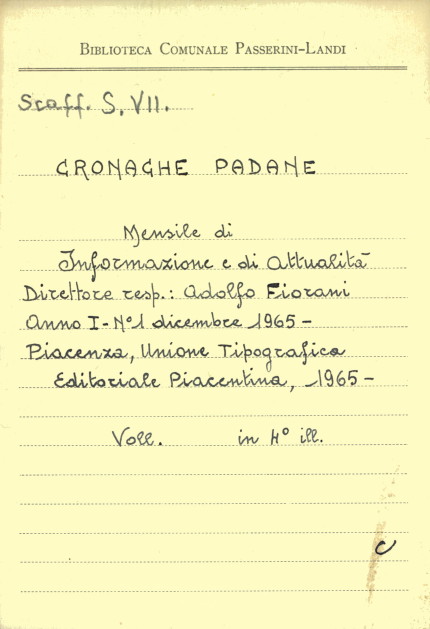 BIBLIOTECA COMUNALE PASSERINI-LANDI
Scaff. S. VII.
CRONACHE PADANE
Mensile di
Informazione e di Attualità
Direttore resp.: Adolfo Fiorani
Anno I - N° 1 dicembre 1965 -
Piacenza, Unione Tipografica
Editoriale Piacentina, 1965 -
Voll. in 4° ill.
C